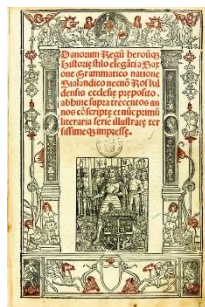 Danorum Regū heroūq;
Historię stilo elegāti a Sax
one Grammatico natione
Sialandico necnō Roskil
densis ecclesię pręposito.
abhinc supra trecentos an
nos cōscriptę et nūc primū
literaria serie illustratę ter
sissimeq; impressę.